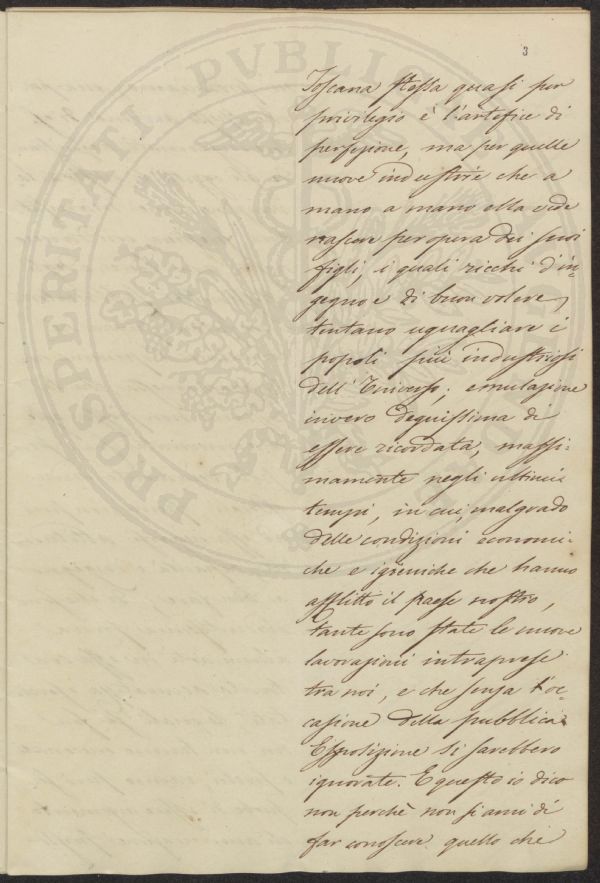 3
Toscana stessa quasi per
privilegio è l'artefice di
perfezione, ma per quelle
nuove industrie che a
mano a mano ella vide
nascere per opera dei suoi
figli, i quali ricchi d'in=
gegno e di buon volere,
tentano uguagliare i
popoli più industriosi
dell'Universo; emulazione
invero degnissima di
essere ricordata, massi=
mamente negli ultimi
tempi, in cui, malgrado
delle condizioni economi=
che e igieniche che hanno
afflitto il paese nostro,
tante sono state le nuove
lavorazioni intraprese
tra noi, e che senza l'oc=
casione della pubblica
Esposizione si sarebbero
ignorate. E questo io dico
non perchè non si ami di
far conoscere quello che
PROSPERITATI PVBLICAE